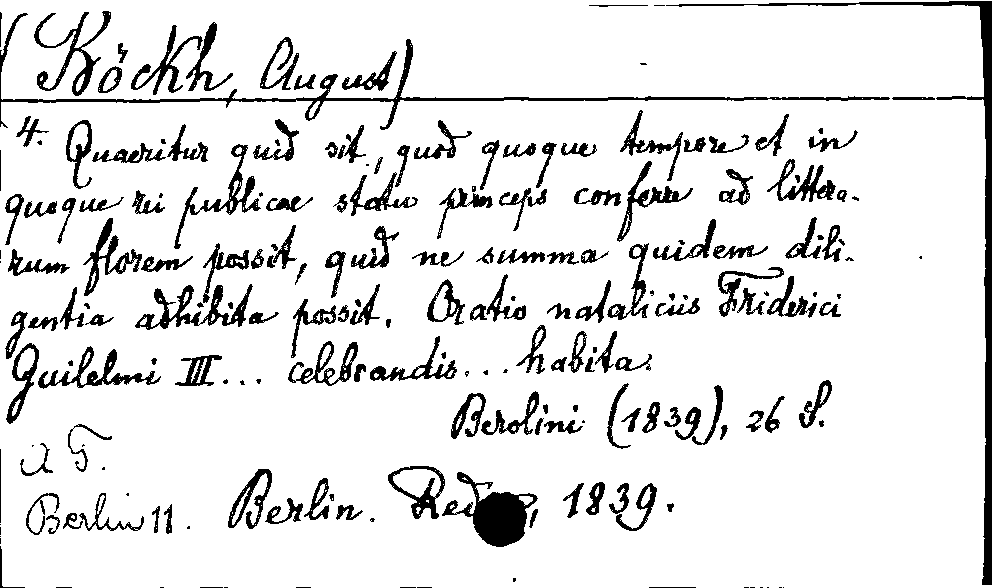 (Böckh, August)
4. Quaeritur quid sit, quod quoque tempore et in
quoque rei publicae statu princeps conferre ad littera-
rum florem possit, quid ne summa quidem dili-
gentia adhibita possit. Oratio nataliciis Friderici
Guilelmi III... celebrandis... habita.
Berolini (1839), 26 S.
A T.
Berlin 11. Berlin. 1839.